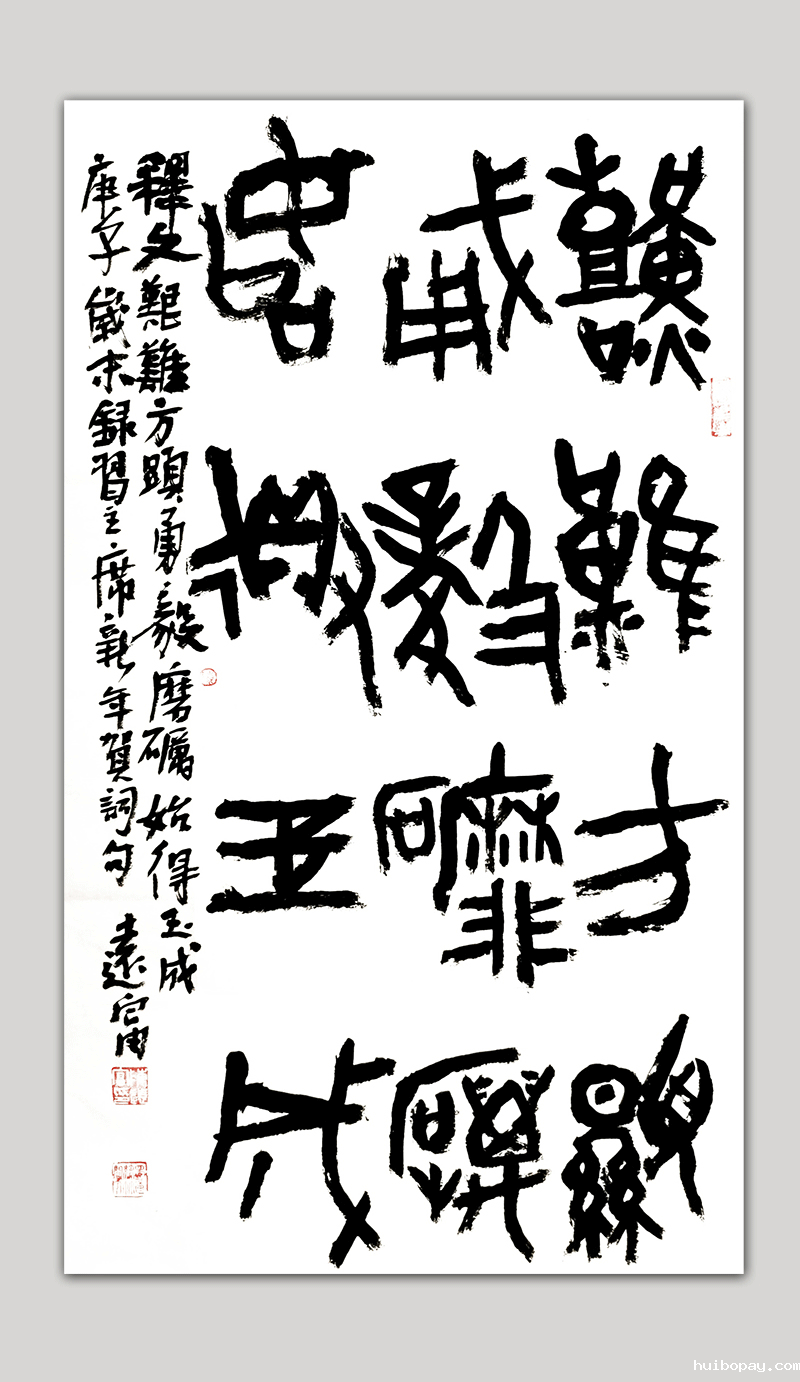 艱難方顯
勇毅磨礪
始得玉成
釋文艱難方顯勇毅磨礪始得玉成
庚子歲末録習主席新年賀詞句 遠
huibopay.com